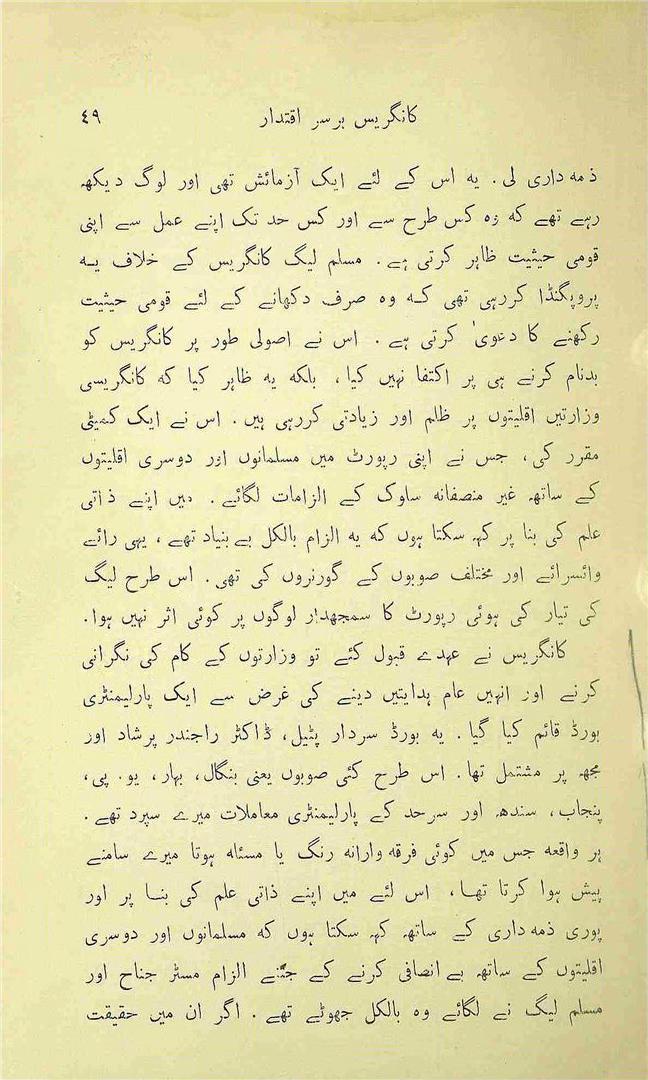 کانگریس برسر اقتدار ٤٩
ذمه داری لی۔ یه اس کے لئے ایک آزمائش تھی اور لوگ دیکھه
رہے تھے که وہ کس طرح سے اور کس حد تک اپنے عمل سے اپنی
قومی حیثیت ظاہر کرتی ہے۔ مسلم لیگ کانگریس کے خلاف یه
پروپگنڈا کررہی تھی که وہ صرف دکھانے کے لئے قومی حیثیت
رکھنے کا دعویٰ کرتی ہے۔ اس نے اصولی طور پر کانگریس کو
بدنام کرنے ہی پر اکتفا نہیں کیا، بلکه یه ظاہر کیا که کانگریسی
وزارتیں اقلیتوں پر ظلم اور زیادتی کررہی ہیں۔ اس نے ایک کمیٹی
مقرر کی، جس نے اپنی رپورٹ میں مسلمانوں اور دوسری اقلیتوں
کے ساتھه غیر منصفانه سلوک کے الزامات لگائے۔ میں اپنے ذاتی
علم کی بنا پر کہه سکتا ہوں که یه الزام بالکل بے بنیاد تھے، یہی رائے
وائسرائے اور مختلف صوبوں کے گورنروں کی تھی۔ اس طرح لیگ
کی تیار کی ہوئی رپورٹ کا سمجھدار لوگوں پر کوئی اثر نہیں ہوا۔
کانگریس نے عہدے قبول کئے تو وزارتوں کے کام کی نگرانی
کرنے اور انہیں عام ہدایتیں دینے کی غرض سے ایک پارلیمنٹری
بورڈ قائم کیا گیا۔ یه بورڈ سردار پٹیل، ڈاکٹر راجندر پرشاد اور
مجھه پر مشتمل تھا۔ اس طرح کئی صوبوں یعنی بنگال، بہار، یو۔ پی،
پنجاب، سندھه اور سرحد کے پارلیمنٹری معاملات میرے سپرد تھے۔
ہر واقعه جس میں کوئی فرقه وارانه رنگ یا مسئله ہوتا میرے سامنے
پیش ہوا کرتا تھا، اس لئے میں اپنے ذاتی علم کی بنا پر اور
پوری ذمه داری کے ساتھه کہه سکتا ہوں که مسلمانوں اور دوسری
اقلیتوں کے ساتھه بے انصافی کرنے کے جتنے الزام مسٹر جناح اور
مسلم لیگ نے لگائے وہ بالکل جھوٹے تھے۔ اگر ان میں حقیقت